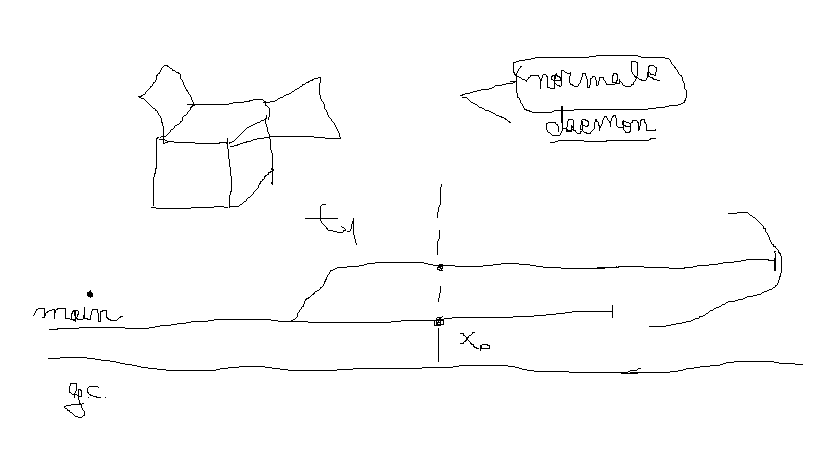 normale
daemon
t1
main
x0
gc